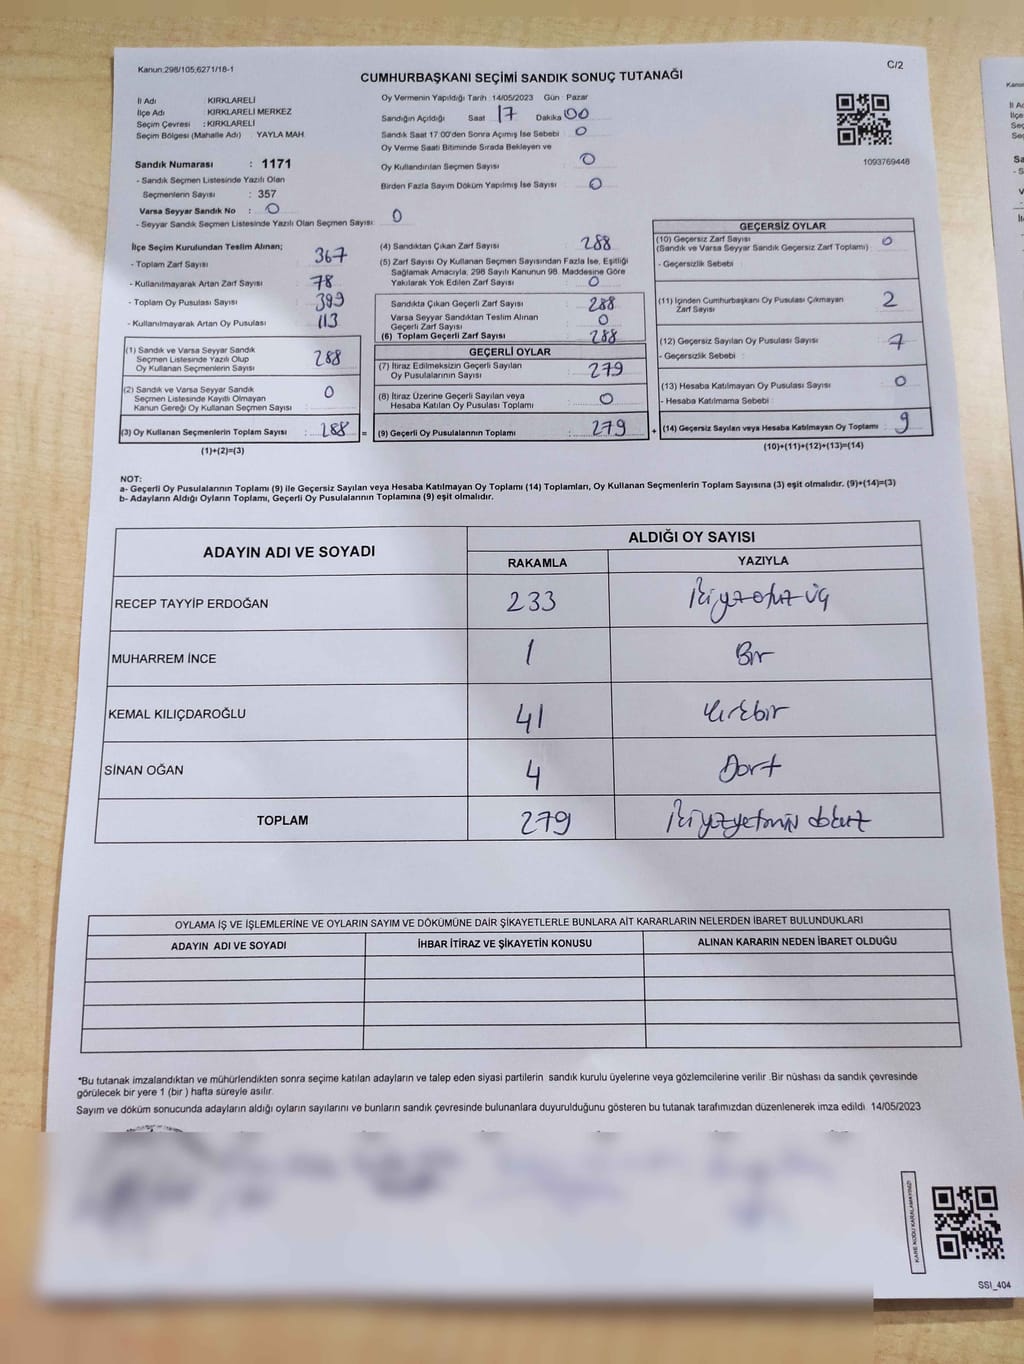 Kanun:298/105,6271/18-1
CUMHURBAŞKANI SEÇİMİ SANDIK SONUÇ TUTANAĞI
C/2
İl Adı : KIRKLARELİ
İlçe Adı : KIRKLARELİ MERKEZ
Seçim Çevresi : KIRKLARELİ
Seçim Bölgesi (Mahalle Adı) YAYLA MAH.
Sandık Numarası : 1171
- Sandık Seçmen Listesinde Yazılı Olan
Seçmenlerin Sayısı : 357
Varsa Seyyar Sandık No : 0
- Seyyar Sandık Seçmen Listesinde Yazılı Olan Seçmen Sayısı: 0
Oy Vermenin Yapıldığı Tarih : 14/05/2023 Gün : Pazar
Sandığın Açıldığı Saat 17 Dakika 00
Sandık Saat 17:00'den Sonra Açımış İse Sebebi : 0
Oy Verme Saati Bitiminde Sırada Bekleyen ve
Oy Kullandırılan Seçmen Sayısı : 0
Birden Fazla Sayım Döküm Yapılmış İse Sayısı : 0
1093769448
İlçe Seçim Kurulundan Teslim Alınan;
- Toplam Zarf Sayısı : 367
- Kullanılmayarak Artan Zarf Sayısı : 78
- Toplam Oy Pusulası Sayısı : 399
- Kullanılmayarak Artan Oy Pusulası : 113
(1) Sandık ve Varsa Seyyar Sandık
Seçmen Listesinde Yazılı Olup
Oy Kullanan Seçmenlerin Sayısı : 288
(2) Sandık ve Varsa Seyyar Sandık
Seçmen Listesinde Kayıtlı Olmayan
Kanun Gereği Oy Kullanan Seçmen Sayısı : 0
(3) Oy Kullanan Seçmenlerin Toplam Sayısı : 288 =
(1)+(2)=(3)
(4) Sandıktan Çıkan Zarf Sayısı : 288
(5) Zarf Sayısı Oy Kullanan Seçmen Sayısından Fazla İse, Eşitliği
Sağlamak Amacıyla, 298 Sayılı Kanunun 98. Maddesine Göre
Yakılarak Yok Edilen Zarf Sayısı : 0
Sandıkta Çıkan Geçerli Zarf Sayısı : 288
Varsa Seyyar Sandıktan Teslim Alınan
Geçerli Zarf Sayısı : 0
(6) Toplam Geçerli Zarf Sayısı : 288
GEÇERLİ OYLAR
(7) İtiraz Edilmeksizin Geçerli Sayılan
Oy Pusulalarının Sayısı : 279
(8) İtiraz Üzerine Geçerli Sayılan veya
Hesaba Katılan Oy Pusulası Toplamı : 0
(9) Geçerli Oy Pusulalarının Toplamı : 279 +
GEÇERSİZ OYLAR
(10) Geçersiz Zarf Sayısı : 0
(Sandık ve Varsa Seyyar Sandık Geçersiz Zarf Toplamı)
- Geçersizlik Sebebi :
(11) İçinden Cumhurbaşkanı Oy Pusulası Çıkmayan
Zarf Sayısı : 2
(12) Geçersiz Sayılan Oy Pusulası Sayısı : 7
- Geçersizlik Sebebi :
(13) Hesaba Katılmayan Oy Pusulası Sayısı : 0
- Hesaba Katılmama Sebebi :
(14) Geçersiz Sayılan veya Hesaba Katılmayan Oy Toplamı : 9
(10)+(11)+(12)+(13)=(14)
NOT:
a- Geçerli Oy Pusulalarının Toplamı (9) ile Geçersiz Sayılan veya Hesaba Katılmayan Oy Toplamı (14) Toplamları, Oy Kullanan Seçmenlerin Toplam Sayısına (3) eşit olmalıdır. (9)+(14)=(3)
b- Adayların Aldığı Oyların Toplamı, Geçerli Oy Pusulalarının Toplamına (9) eşit olmalıdır.
ADAYIN ADI VE SOYADI
ALDIĞI OY SAYISI
RAKAMLA YAZIYLA
RECEP TAYYİP ERDOĞAN 233 ikiyüzotuz üç
MUHARREM İNCE 1 Bir
KEMAL KILIÇDAROĞLU 41 kırkbir
SİNAN OĞAN 4 Dört
TOPLAM 279 ikiyüzyetmiş dokuz
OYLAMA İŞ VE İŞLEMLERİNE VE OYLARIN SAYIM VE DÖKÜMÜNE DAİR ŞİKAYETLERLE BUNLARA AİT KARARLARIN NELERDEN İBARET BULUNDUKLARI
ADAYIN ADI VE SOYADI İHBAR İTİRAZ VE ŞİKAYETİN KONUSU ALINAN KARARIN NEDEN İBARET OLDUĞU
*Bu tutanak imzalandıktan ve mühürlendikten sonra seçime katılan adayların ve talep eden siyasi partilerin sandık kurulu üyelerine veya gözlemcilerine verilir .Bir nüshası da sandık çevresinde
görülecek bir yere 1 (bir ) hafta süreyle asılır.
Sayım ve döküm sonucunda adayların aldığı oyların sayılarını ve bunların sandık çevresinde bulunanlara duyurulduğunu gösteren bu tutanak tarafımızdan düzenlenerek imza edildi 14/05/2023
KARE KODU KARALAMAYINIZ!
SSI_404